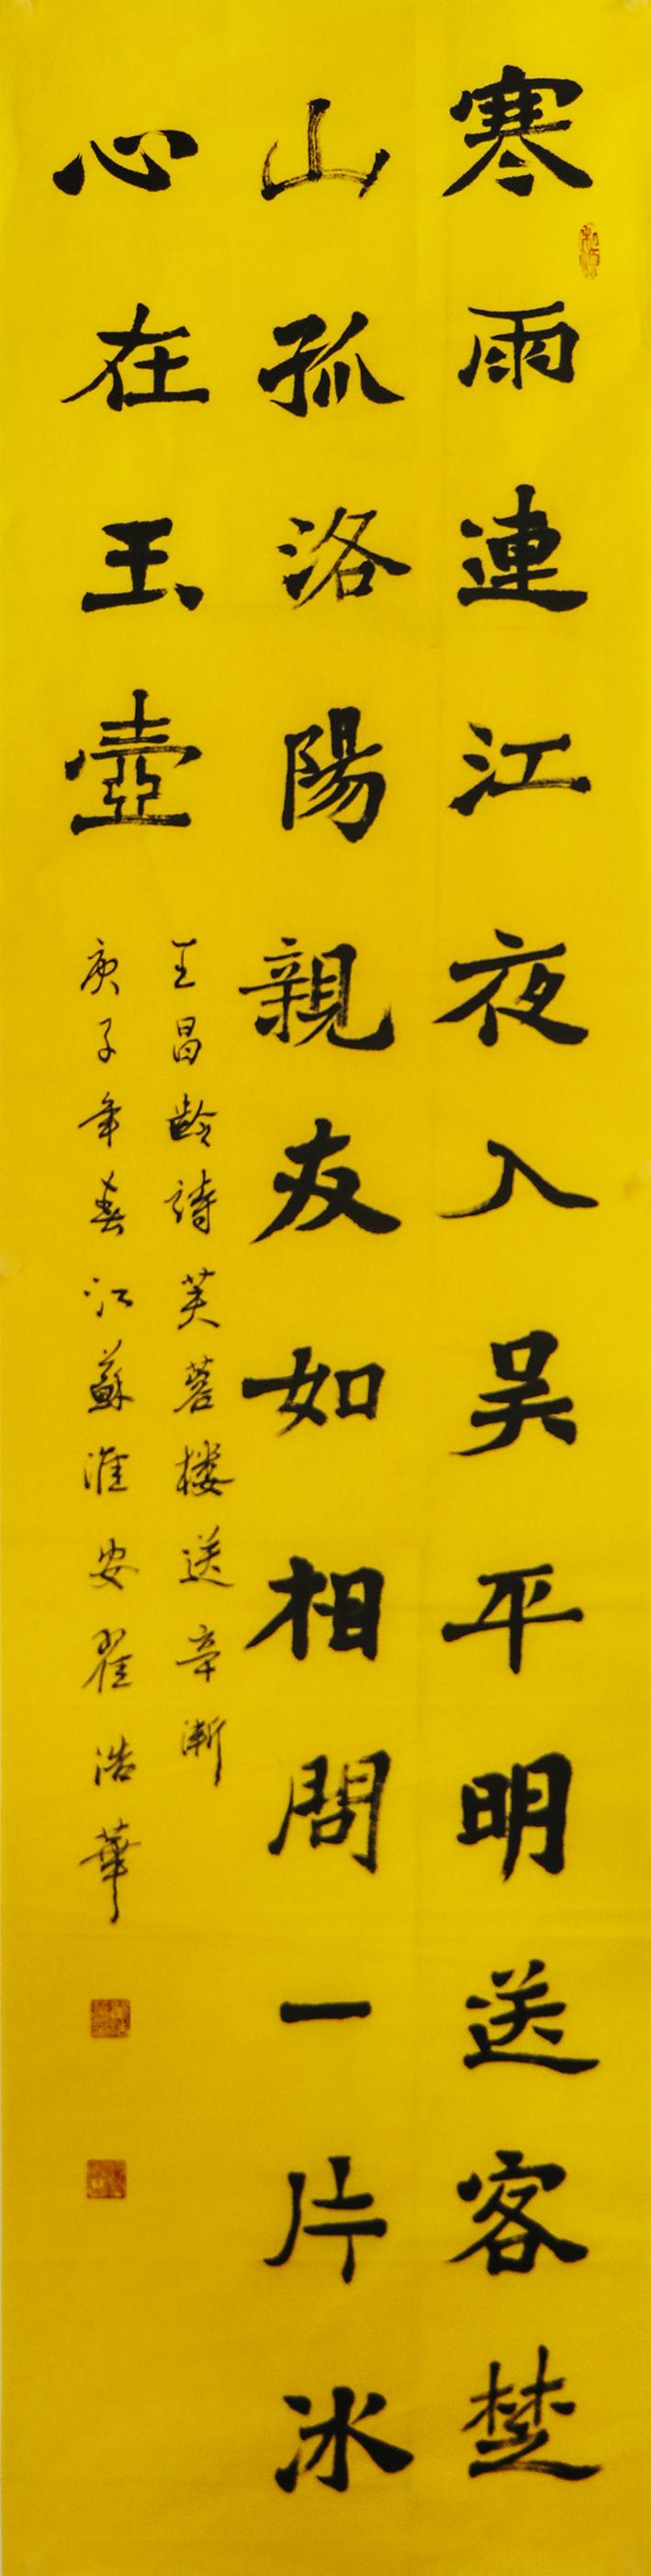 寒雨連江夜入吴平明送客楚
山孤洛陽親友如相問一片冰
心在玉壺
王昌龄詩芙蓉楼送辛漸
庚子年春江蘇淮安翟浩華